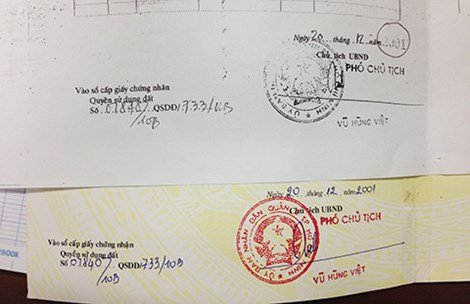 Ngày 20 tháng 12 năm 2001
Chủ tịch UBND
PHÓ CHỦ TỊCH
Vào sổ cấp giấy chứng nhận
Quyền sử dụng đất
Số 01840/QSDĐ/733/10B
/10B
VŨ HÙNG VIỆT
Ngày 20 tháng 12 năm 2001
Chủ tịch UBND
PHÓ CHỦ TỊCH
ỦY BAN NHÂN DÂN QUẬN
Vào sổ cấp giấy chứng nhận
Quyền sử dụng đất
Số 01840/QSDĐ/733/10B
/10B
VŨ HÙNG VIỆT